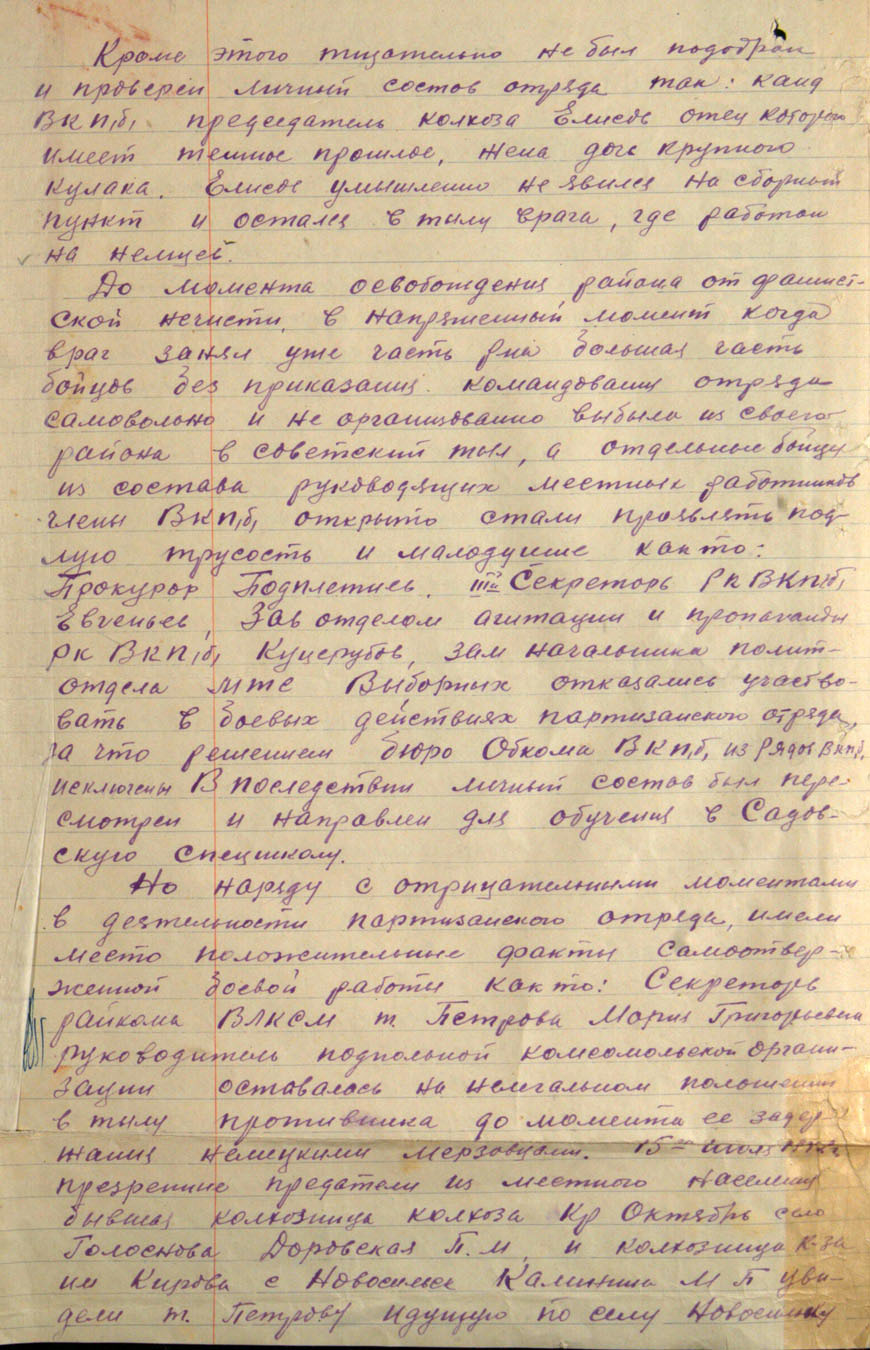 Кроме этого тщательно не был подобран
и проверен личный состав отряда так: канд
ВКП(б) председатель колхоза Елисов отец которого
имеет темное прошлое, жена дочь крупного
кулака. Елисов умышленно не явился на сборный
пункт и остался в тылу врага, где работал
на немцев.
До момента освобождения района от фашист-
ской нечисти, в напряженный момент когда
враг занял уже часть р-на большая часть
бойцов без приказания командования отряда
самовольно и не организованно выбыла из своего
района в советский тыл, а отдельные бойцы
из состава руководящих местных работников
члены ВКП(б) открыто стали проявлять под-
лую трусость и малодушие как то:
Прокурор Подплетнев, IIIий Секретарь РК ВКП(б)
Евгеньев, Зав отделом агитации и пропаганды
РК ВКП(б) Куцерубов, зам начальника полит-
отдела МТС Выборных отказались участво-
вать в боевых действиях партизанского отряда,
за что решением бюро Обкома ВКП(б) из рядов ВКП(б)
исключены В последствии личный состав был пере-
смотрен и направлен для обучения в Садов-
скую спецшколу.
Но наряду с отрицательными моментами
в деятельности партизанского отряда, имели
место положительные факты самоотвер-
женной боевой работы как то: Секретарь
райкома ВЛКСМ т. Петрова Мария Григорьевна
руководитель подпольной комсомольской органи-
зации оставалась на нелегальном положении
в тылу противника до момента ее задер-
жания немецкими мерзавцами. 15го июля
презренные предатели из местного населения
бывшая колхозница колхоза Кр Октябрь село
Голоснова Доровская П.М. и колхозница к-за
им Кирова с Новосилка Калинина М П уви-
дели т. Петрову идущую по селу Новосилку